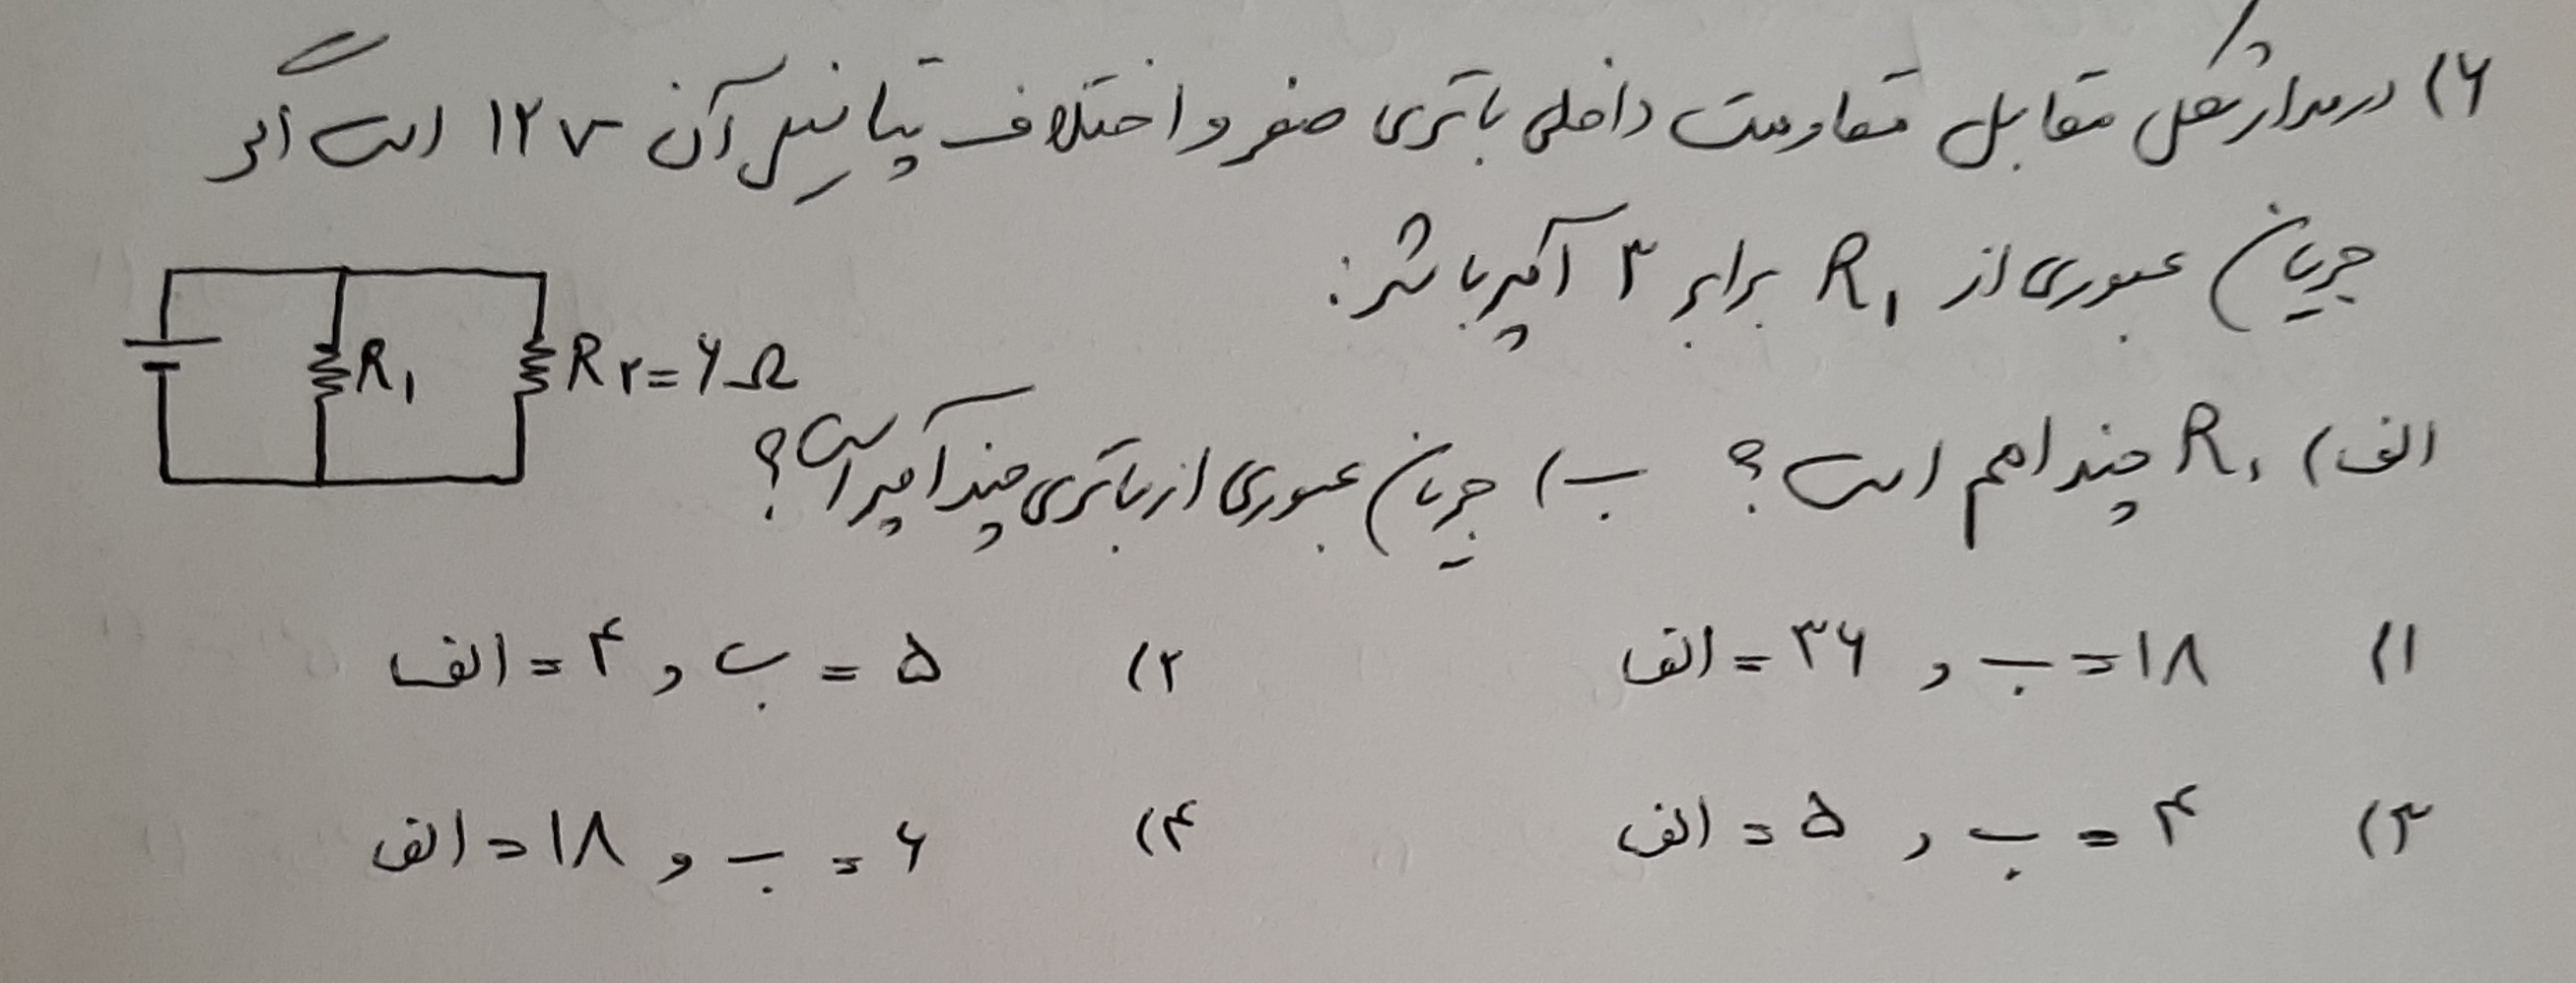 ۶) در مدار شکل مقابل مقاومت داخلی باتری صفر و اختلاف پتانسیل آن ۱۲ v است اگر
جریان عبوری از R۱ برابر ۳ آمپر باشد:
R۱
R۲=۶Ω
الف) R۱ چند اهم است؟ ب) جریان عبوری از باتری چند آمپر است؟
۱) الف = ۳۶ و ب = ۱۸
۲) الف = ۴ و ب = ۵
۳) الف = ۵ و ب = ۴
۴) الف = ۱۸ و ب = ۶